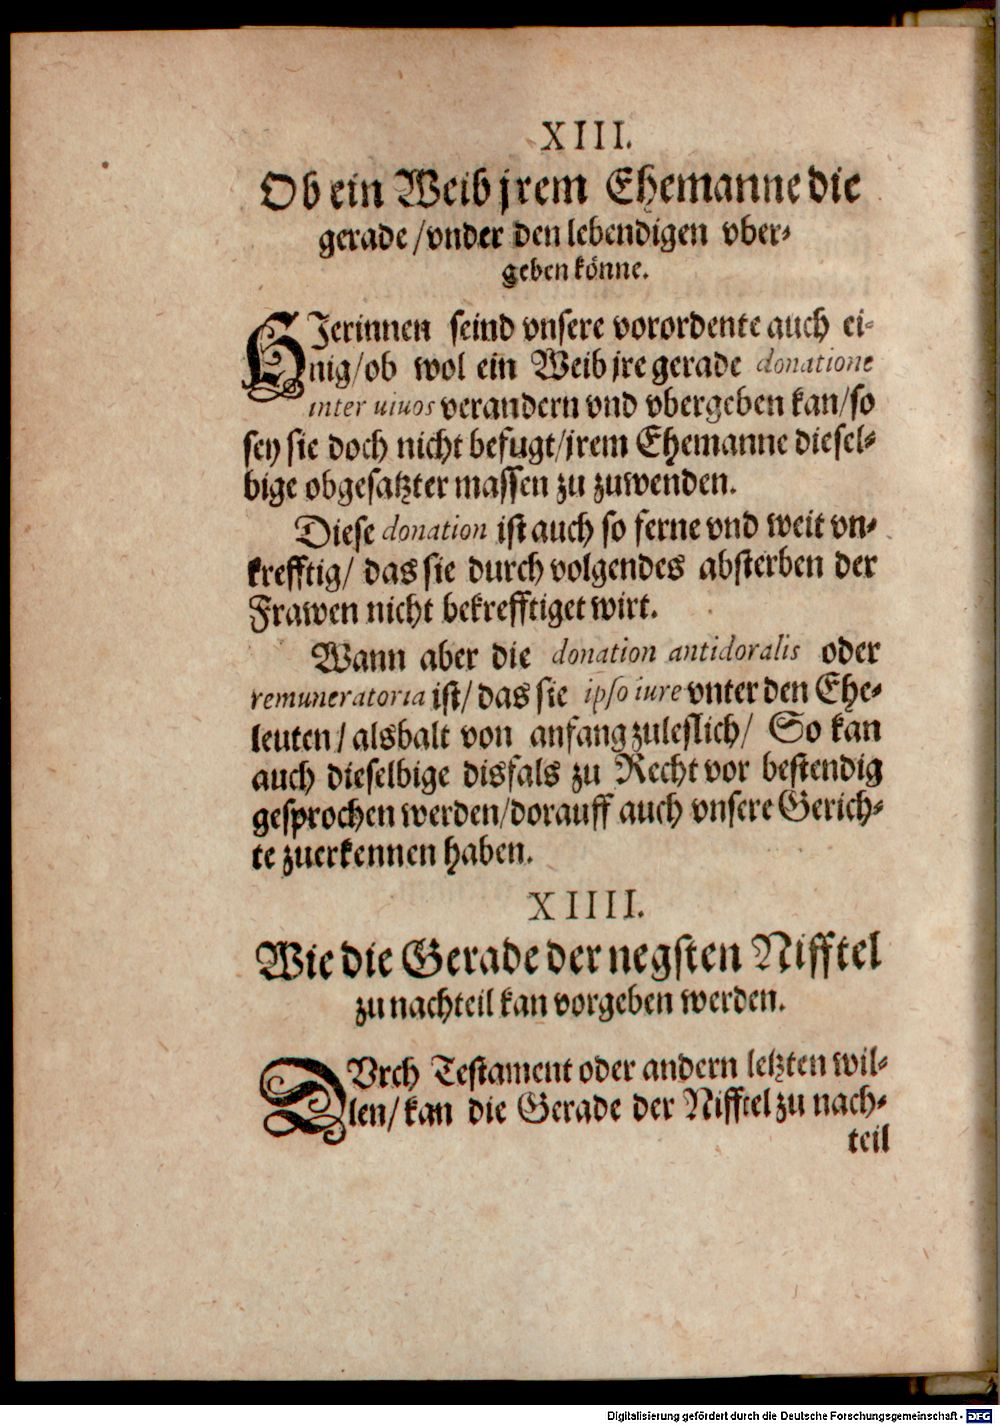 XIII.
Ob ein Weib jrem Ehemanne die
gerade / vnder den lebendigen vber-
geben könne.
HJerinnen seind vnsere vorordente auch ei-
nig / ob wol ein Weib jre gerade donatione
inter uiuos verandern vnd vbergeben kan / so
sey sie doch nicht befugt / jrem Ehemanne diesel-
bige obgesatzter massen zu zuwenden.
Diese donation ist auch so ferne vnd weit vn-
krefftig / das sie durch volgendes absterben der
Frawen nicht bekrefftiget wirt.
Wann aber die donation antidoralis oder
remuneratoria ist / das sie ipso iure vnter den Ehe-
leuten / alsbalt von anfang zuleslich / So kan
auch dieselbige disfals zu Recht vor bestendig
gesprochen werden / dorauff auch vnsere Gerich-
te zuerkennen haben.
XIIII.
Wie die Gerade der negsten Nifftel
zu nachteil kan vorgeben werden.
DVrch Testament oder andern letzten wil-
len / kan die Gerade der Nifftel zu nach-
teil
Digitalisierung gefördert durch die Deutsche Forschungsgemeinschaft - DFG